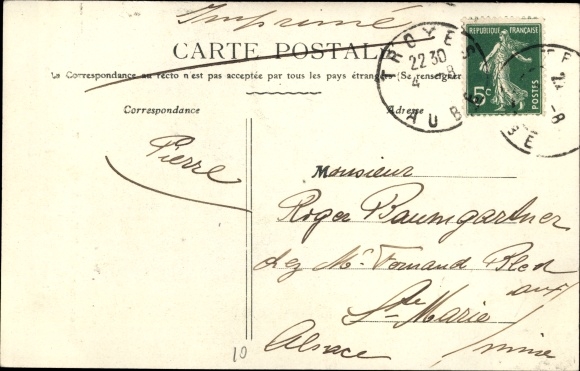 Imprimé
CARTE POSTALE
La Correspondance au recto n'est pas acceptée par tous les pays étrangers (Se renseigner
RÉPUBLIQUE FRANÇAISE
5c
POSTES
TROYES
22 30
4 -8
AUBE
22
-8
BE
Correspondance
Adresse
Pierre
Monsieur
Roger Baumgartner
chez Mr Fernand Bloch
Ste Marie aux
Alsace / mine
10